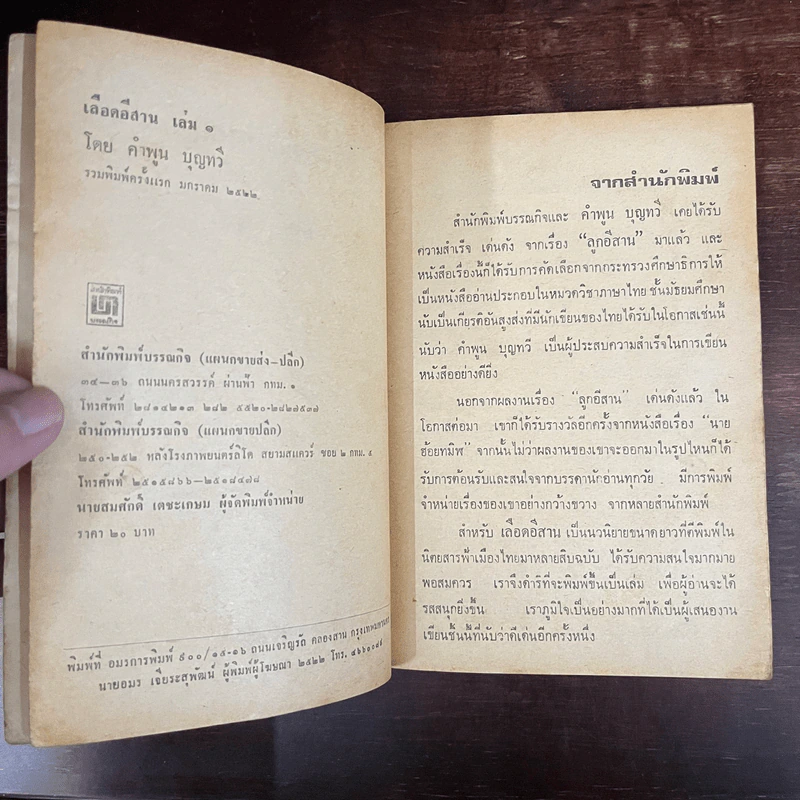 เลือดอีสาน เล่ม ๑
โดย คำพูน บุญทวี
รวมพิมพ์ครั้งแรก มกราคม ๒๕๒๒
สำนักพิมพ์
บรรณกิจ
สำนักพิมพ์บรรณกิจ (แผนกขายส่ง-ปลีก)
๓๔–๓๖ ถนนนครสวรรค์ ผ่านฟ้า กทม. ๑
โทรศัพท์ ๒๘๑๔๒๑๓ ๒๘๒ ๕๕๒๐-๒๘๒๗๕๓๗
สำนักพิมพ์บรรณกิจ (แผนกขายปลีก)
๒๕๐-๒๕๒ หลังโรงภาพยนตร์ลิโด สยามสแควร์ ซอย ๒ กทม. ๕
โทรศัพท์ ๒๕๑๕๘๖๖–๒๕๑๘๔๗๘
นายสมศักดิ์ เตชะเกษม ผู้จัดพิมพ์จำหน่าย
ราคา ๒๐ บาท
พิมพ์ที่ อมรการพิมพ์ ๙๐๐/๑๕-๑๖ ถนนเจริญรัถ คลองสาน
นายอมร เจียระสุพัฒน์ ผู้พิมพ์ผู้โฆษณา ๒๕๒๒ โทร.
จากสำนักพิมพ์
สำนักพิมพ์บรรณกิจและ คำพูน บุญทวี เคยได้รับ
ความสำเร็จ เด่นดัง จากเรื่อง “ลูกอีสาน” มาแล้ว และ
หนังสือเรื่องนี้ก็ได้รับการคัดเลือกจากกระทรวงศึกษาธิการให้
เป็นหนังสืออ่านประกอบในหมวดวิชาภาษาไทย ชั้นมัธยมศึกษา
นับเป็นเกียรติอันสูงส่งที่มีนักเขียนของไทยได้รับในโอกาสเช่นนี้
นับว่า คำพูน บุญทวี เป็นผู้ประสบความสำเร็จในการเขียน
หนังสืออย่างดียิ่ง
นอกจากผลงานเรื่อง “ลูกอีสาน” เด่นดังแล้ว ใน
โอกาสต่อมา เขาก็ได้รับรางวัลอีกครั้งจากหนังสือเรื่อง “นาย
ฮ้อยทมิฬ” จากนั้นไม่ว่าผลงานของเขาจะออกมาในรูปไหนก็ได้
รับการต้อนรับและสนใจจากบรรดานักอ่านทุกวัย มีการพิมพ์
จำหน่ายเรื่องของเขาอย่างกว้างขวาง จากหลายสำนักพิมพ์
สำหรับ เลือดอีสาน เป็นนวนิยายขนาดยาวที่ตีพิมพ์ใน
นิตยสารฟ้าเมืองไทยมาหลายสิบฉบับ ได้รับความสนใจมากมาย
พอสมควร เราจึงดำริที่จะพิมพ์ขึ้นเป็นเล่ม เพื่อผู้อ่านจะได้
รสสนุกยิ่งขึ้น เราภูมิใจเป็นอย่างมากที่ได้เป็นผู้เสนองาน
เขียนชิ้นนี้ที่นับว่าดีเด่นอีกครั้งหนึ่ง